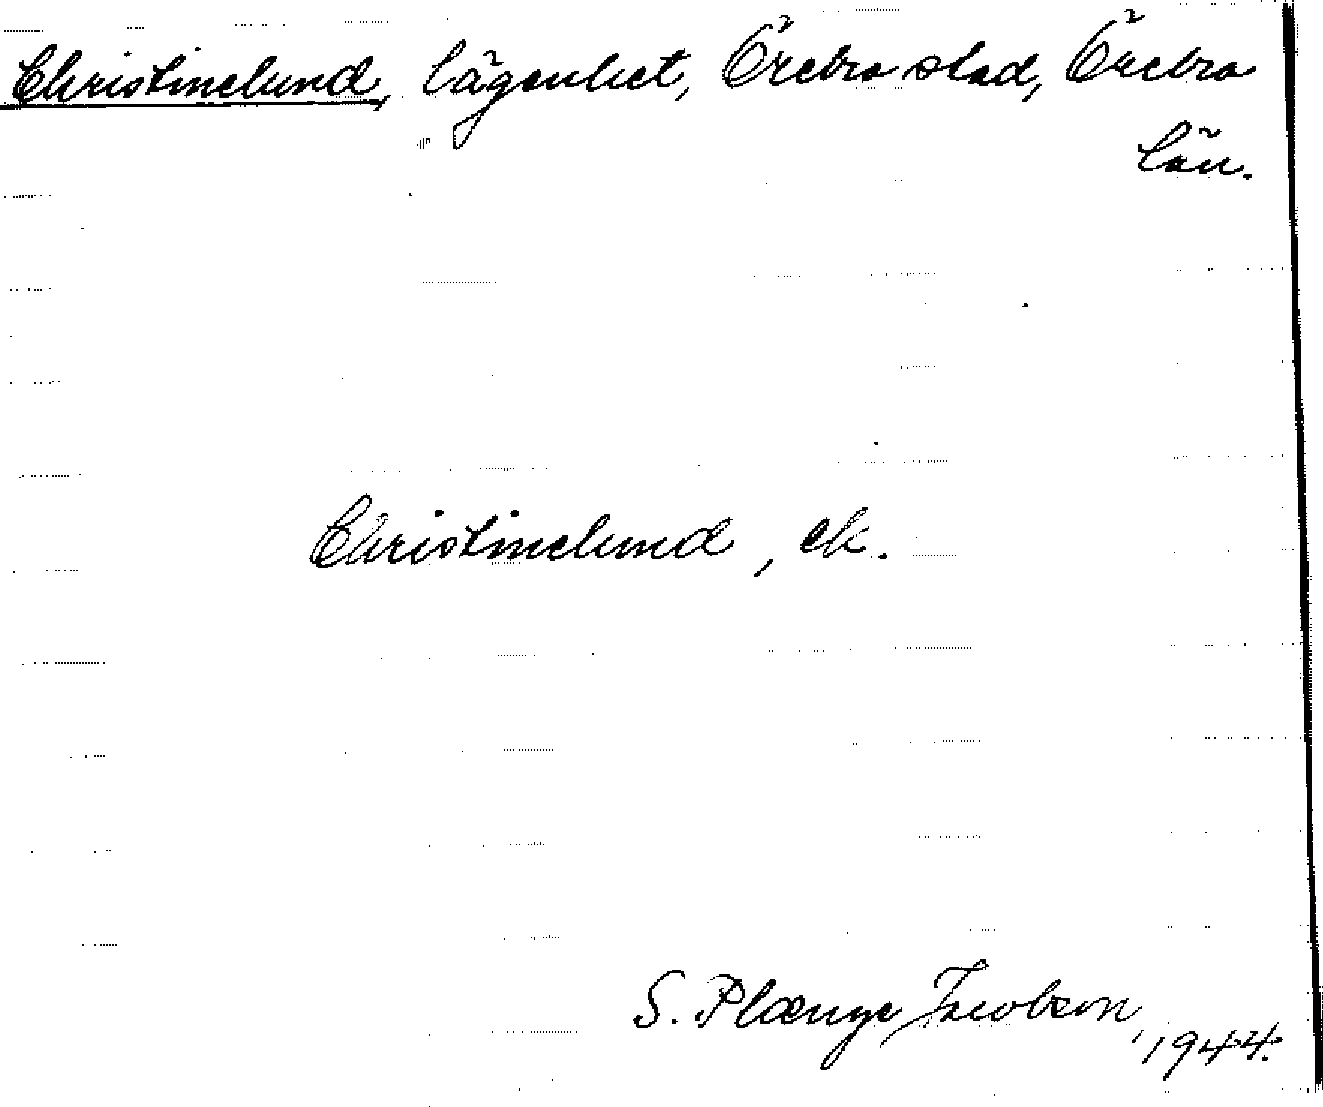 Christinelund, lägenhet, Örebro stad, Örebro
län.
Christinelund, ek.
S. Plænge Jacobson,
1944.